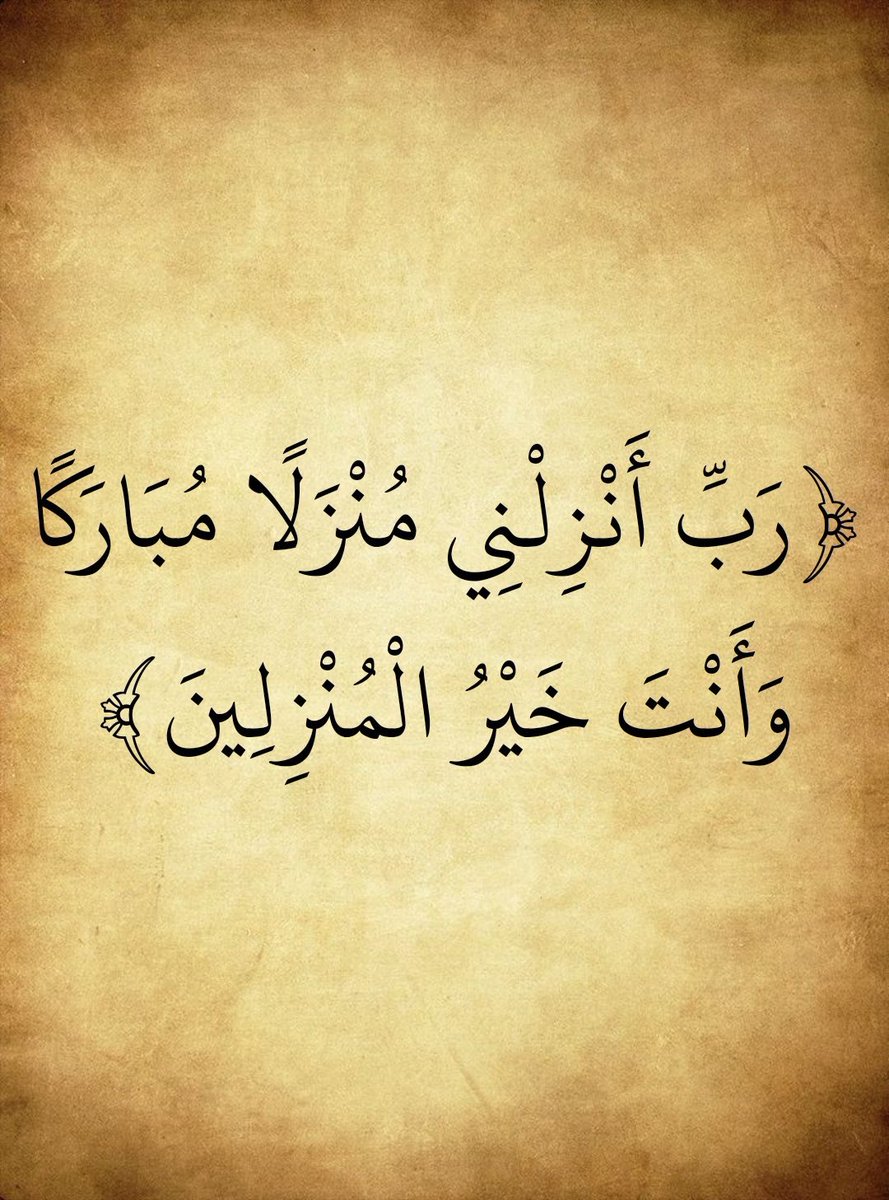 ﴿رَبِّ أَنْزِلْنِي مُنْزَلًا مُبَارَكًا
وَأَنْتَ خَيْرُ الْمُنْزِلِينَ﴾